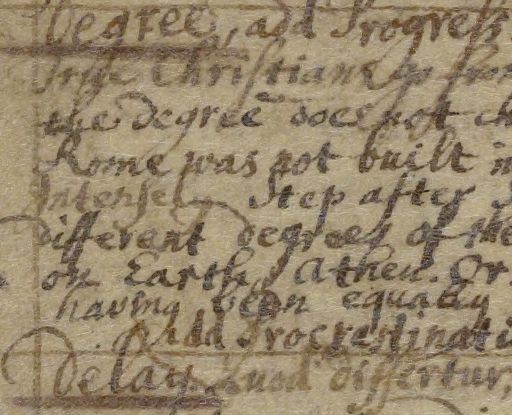 Degree, add Progress
True Christians go from
the degree does not ch
Rome was not built in
Intense Step after S
different degrees of the
on Earth, Athen. Or.
having been equally
add Procrastinati
Delay. Quod differtur,